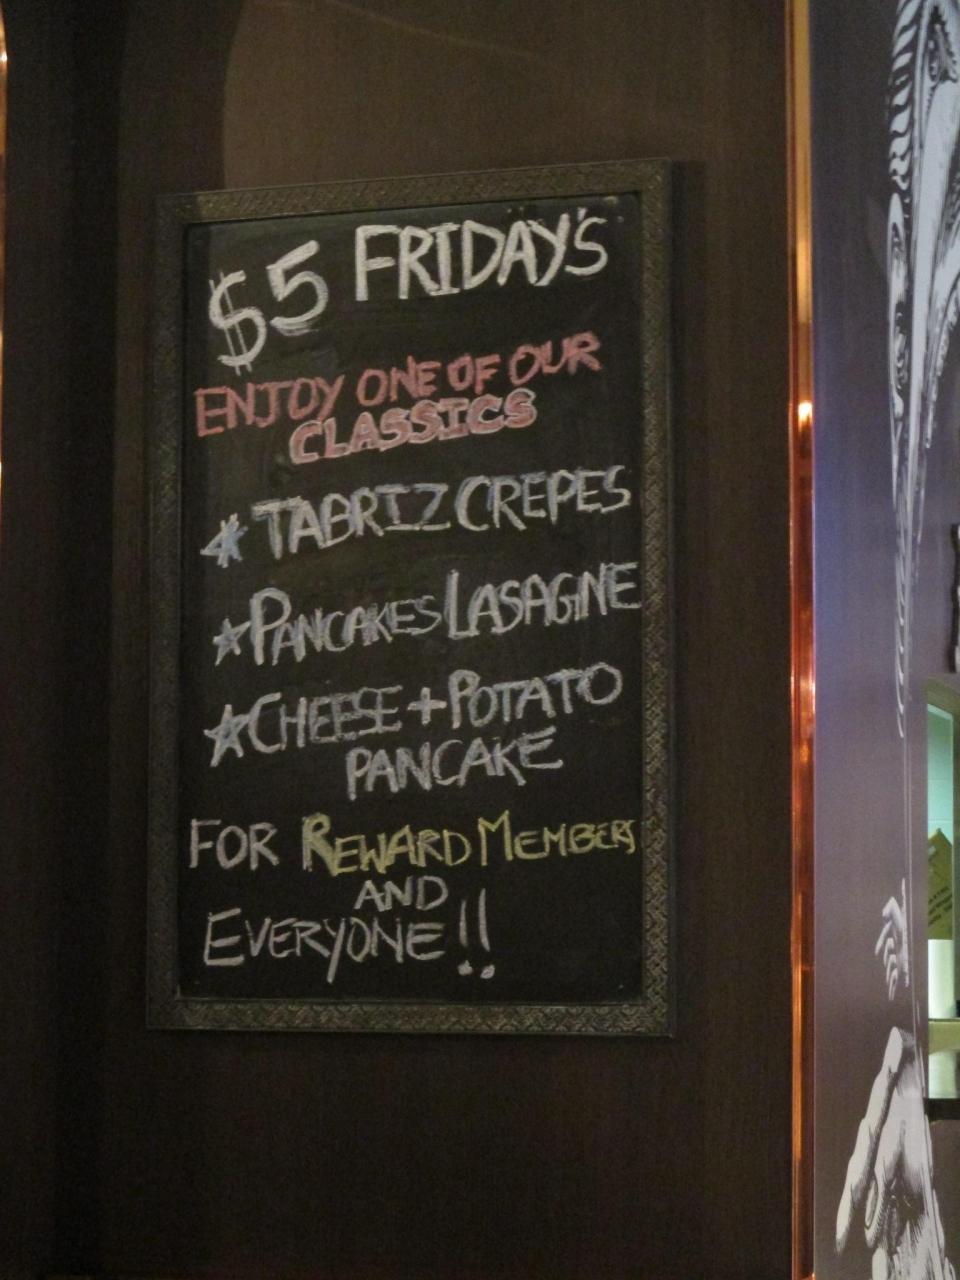 $5 FRIDAY'S
ENJOY ONE OF OUR
CLASSICS
★ TABRIZ CREPES
★ PANCAKES LASAGNE
★ CHEESE + POTATO
PANCAKE
FOR REWARD MEMBERS
AND
EVERYONE!!